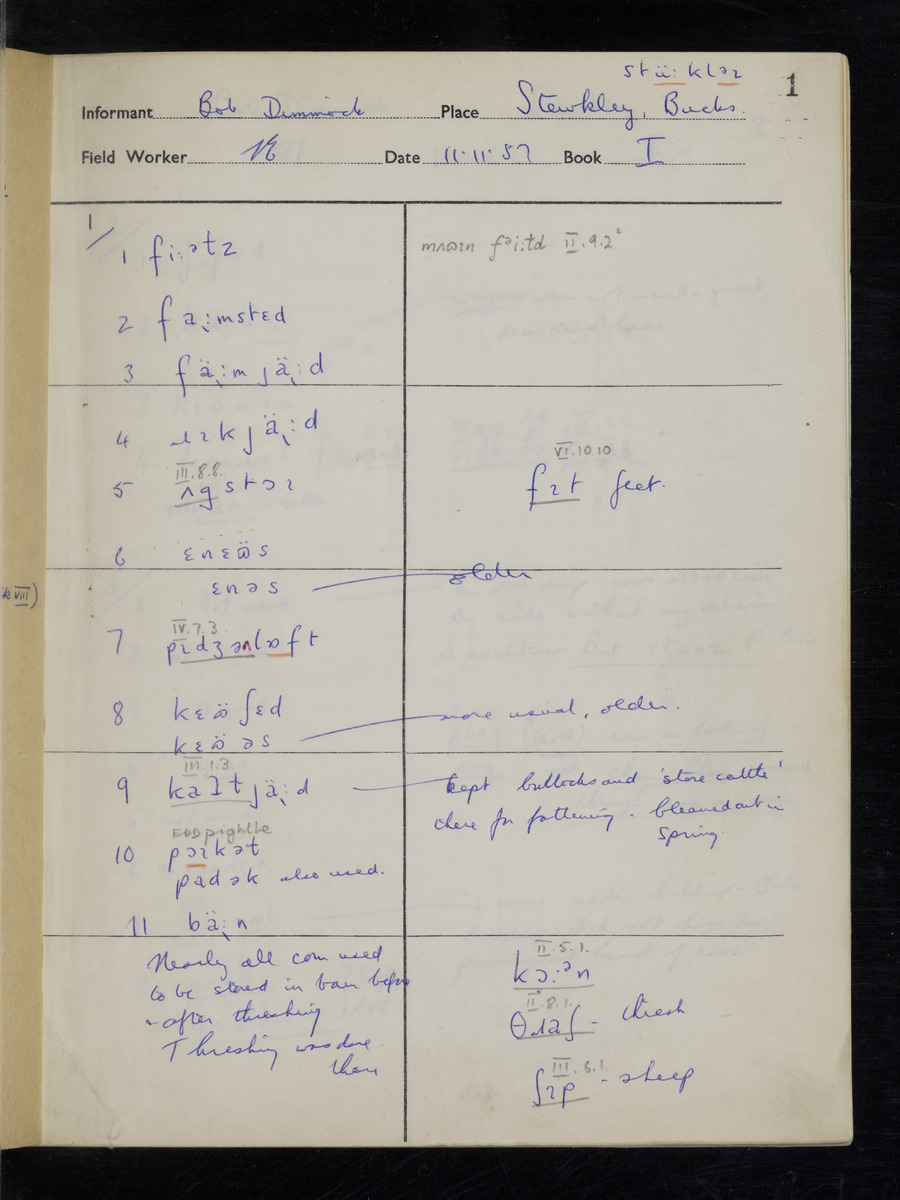 stü:kləɪ
1
Informant Bob Dimmock Place Stewkley, Bucks.
Field Worker Date 11.11.57 Book I
1/
1 fi:ətz
mʌʊɪn fəi:td II.9.2
2 fa˞:mstɛd
3 fä˞:m jä˞:d
4 ɹɪkjä˞:d
VI.10.10
III.8.8.
5 ʌgstəɪ
fɪt feet.
6 ɛnɛʊ̈s
ɛnəs older
k VIII)
IV.7.3.
7 pɪdʒənlɒft
8 kɛʊ̈ʃɛd
kɛʊ̈əs more usual, older.
III.1.3.
9 kaʔtjä˞:d kept bullocks and 'store cattle'
there for fattening. Cleaned out in
Spring.
EDD pightle
10 pəɪkət
padək also used.
11 bä˞:n
Nearly all corn used
to be stored in barn before
after threshing
Threshing was done
there
II.5.1.
kɔ:ən
II.8.1.
θɹaʃ - thresh
III.6.1
ʃɪp - sheep